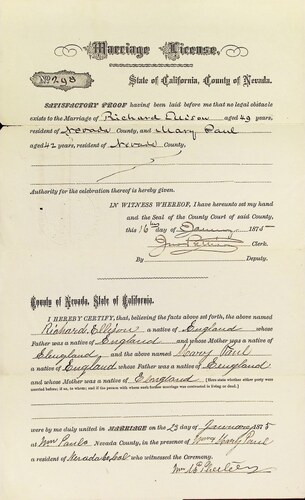 Marriage License.
No 298
State of California, County of Nevada.
SATISFACTORY PROOF having been laid before me that no legal obstacle
exists to the Marriage of Richard Ellison aged 49 years,
resident of Nevada County, and Mary Paul
aged 42 years, resident of Nevada County,
Authority for the celebration thereof is hereby given.
IN WITNESS WHEREOF, I have hereunto set my hand
and the Seal of the County Court of said County,
this 16 day of January 1875
Clerk.
By Deputy.
County of Nevada, State of California.
I HEREBY CERTIFY, that, believing the facts above set forth, the above named
Richard Ellison a native of England whose
Father was a native of England and whose Mother was a native of
England and the above named Mary Paul
a native of England whose Father was a native of England
and whose Mother was a native of England (Here state whether either party were
married before; if so, to whom; and if the person with whom such former marriage was contracted is living or dead.)
were by me duly united in MARRIAGE on the day of January 1875
at Wm Pauls Nevada County, in the presence of Mary Paul
a resident of Nevada who witnessed the Ceremony.